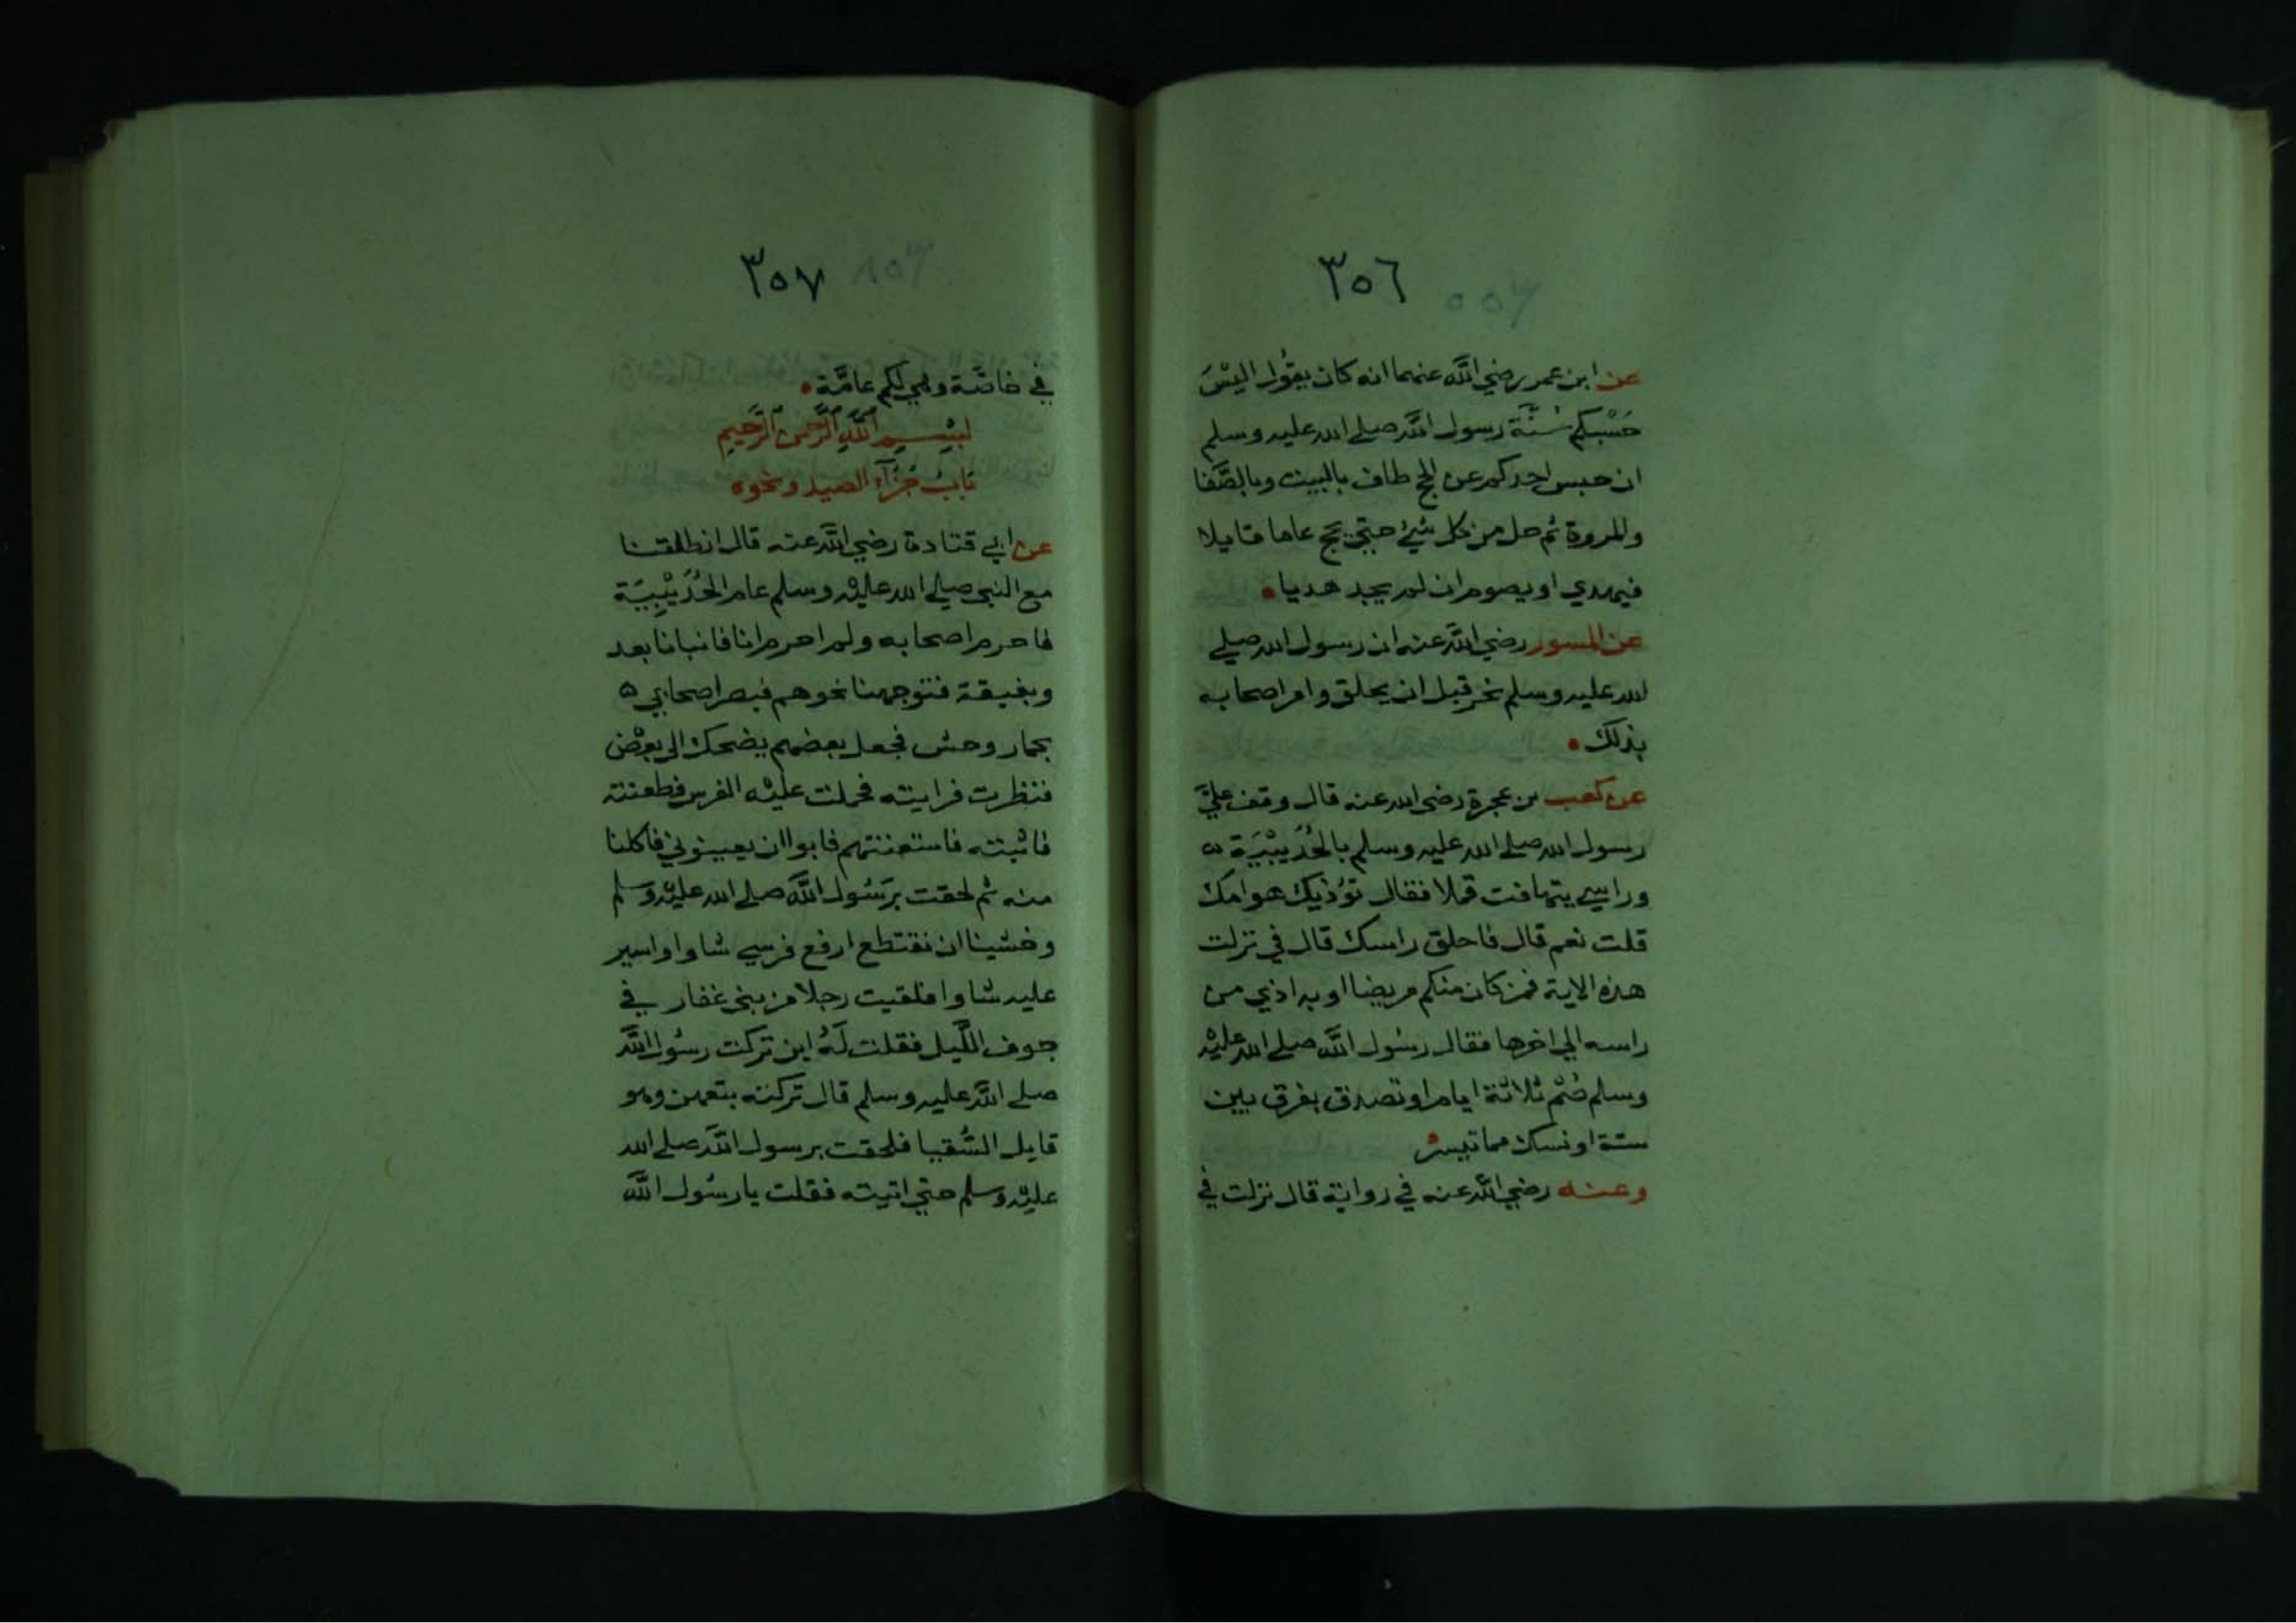 ٣٥٦
عن ابن عمر رضي الله عنهما انه كان يقول اليسَ
حَسْبكم سُنَّة رسول الله صلى الله عليه وسلم
ان حبس احدكم عن الحج طاف بالبيت وبالصَّفا
والمروة ثم حل من كل شئ حتى يحج عاما قابلا
فيهدي او يصوم ان لم يجد هديا
عن المسور رضي الله عنه ان رسول الله صلى
الله عليه وسلم نحر قبل ان يحلق وامر اصحابه
بذلك
عن كعب بن عجرة رضي الله عنه قال وقف عليَّ
رسول الله صلى الله عليه وسلم بالحُدَيْبيَة
وراسي يتهافت قملا فقال تؤذيك هوامك
قلت نعم قال فاحلق راسك قال في نزلت
هذه الاية فمن كان منكم مريضا او به اذي من
راسه الي اخرها فقال رسُول الله صلى الله عليْه
وسلم صُم ثلاثة ايام او تصدق بفرق بين
ستة او نسك مما تيسر
وعنه رضي الله عنه في رواية قال نزلت في
٣٥٧
في خاصَّة وهي لكم عامَّة
بِسْمِ اللَّهِ الرَّحْمنِ الرَّحِيمِ
بَابُ جَزَآءِ الصيد ونحوه
عن ابي قتادة رضي الله عنه قال انطلقنا
مع النبي صلى الله عليْه وسلم عام الحُدَيْبِيَة
فاحرم اصحابه ولم احرم انا فانبانا بعد
وبغيقة فتوجهنا نحوهم فبصر اصحابي
بحمار وحش فجعل بعضهم يضحك الى بعْض
فنظرت فرايته فحملت عليْه الفرس فطعنته
فاثبته فاستعنتهم فابوا ان يعينوني فاكلنا
منه ثم لحقت برَسُول اللَّه صلى الله عليْه وسلم
وخشينا ان نقتطع ارفع فرسي شاوا واسير
عليه شاوا فلقيت رجلا من بني غفار في
جوف اللَّيل فقلت لَهُ اين تركت رسُول اللَّه
صلى الله عليه وسلم قال تركته بتعهن وهو
قايل السُّقيا فلحقت برسول الله صلى الله
عليْه وسلم حتي اتيته فقلت يا رسُول اللَّه